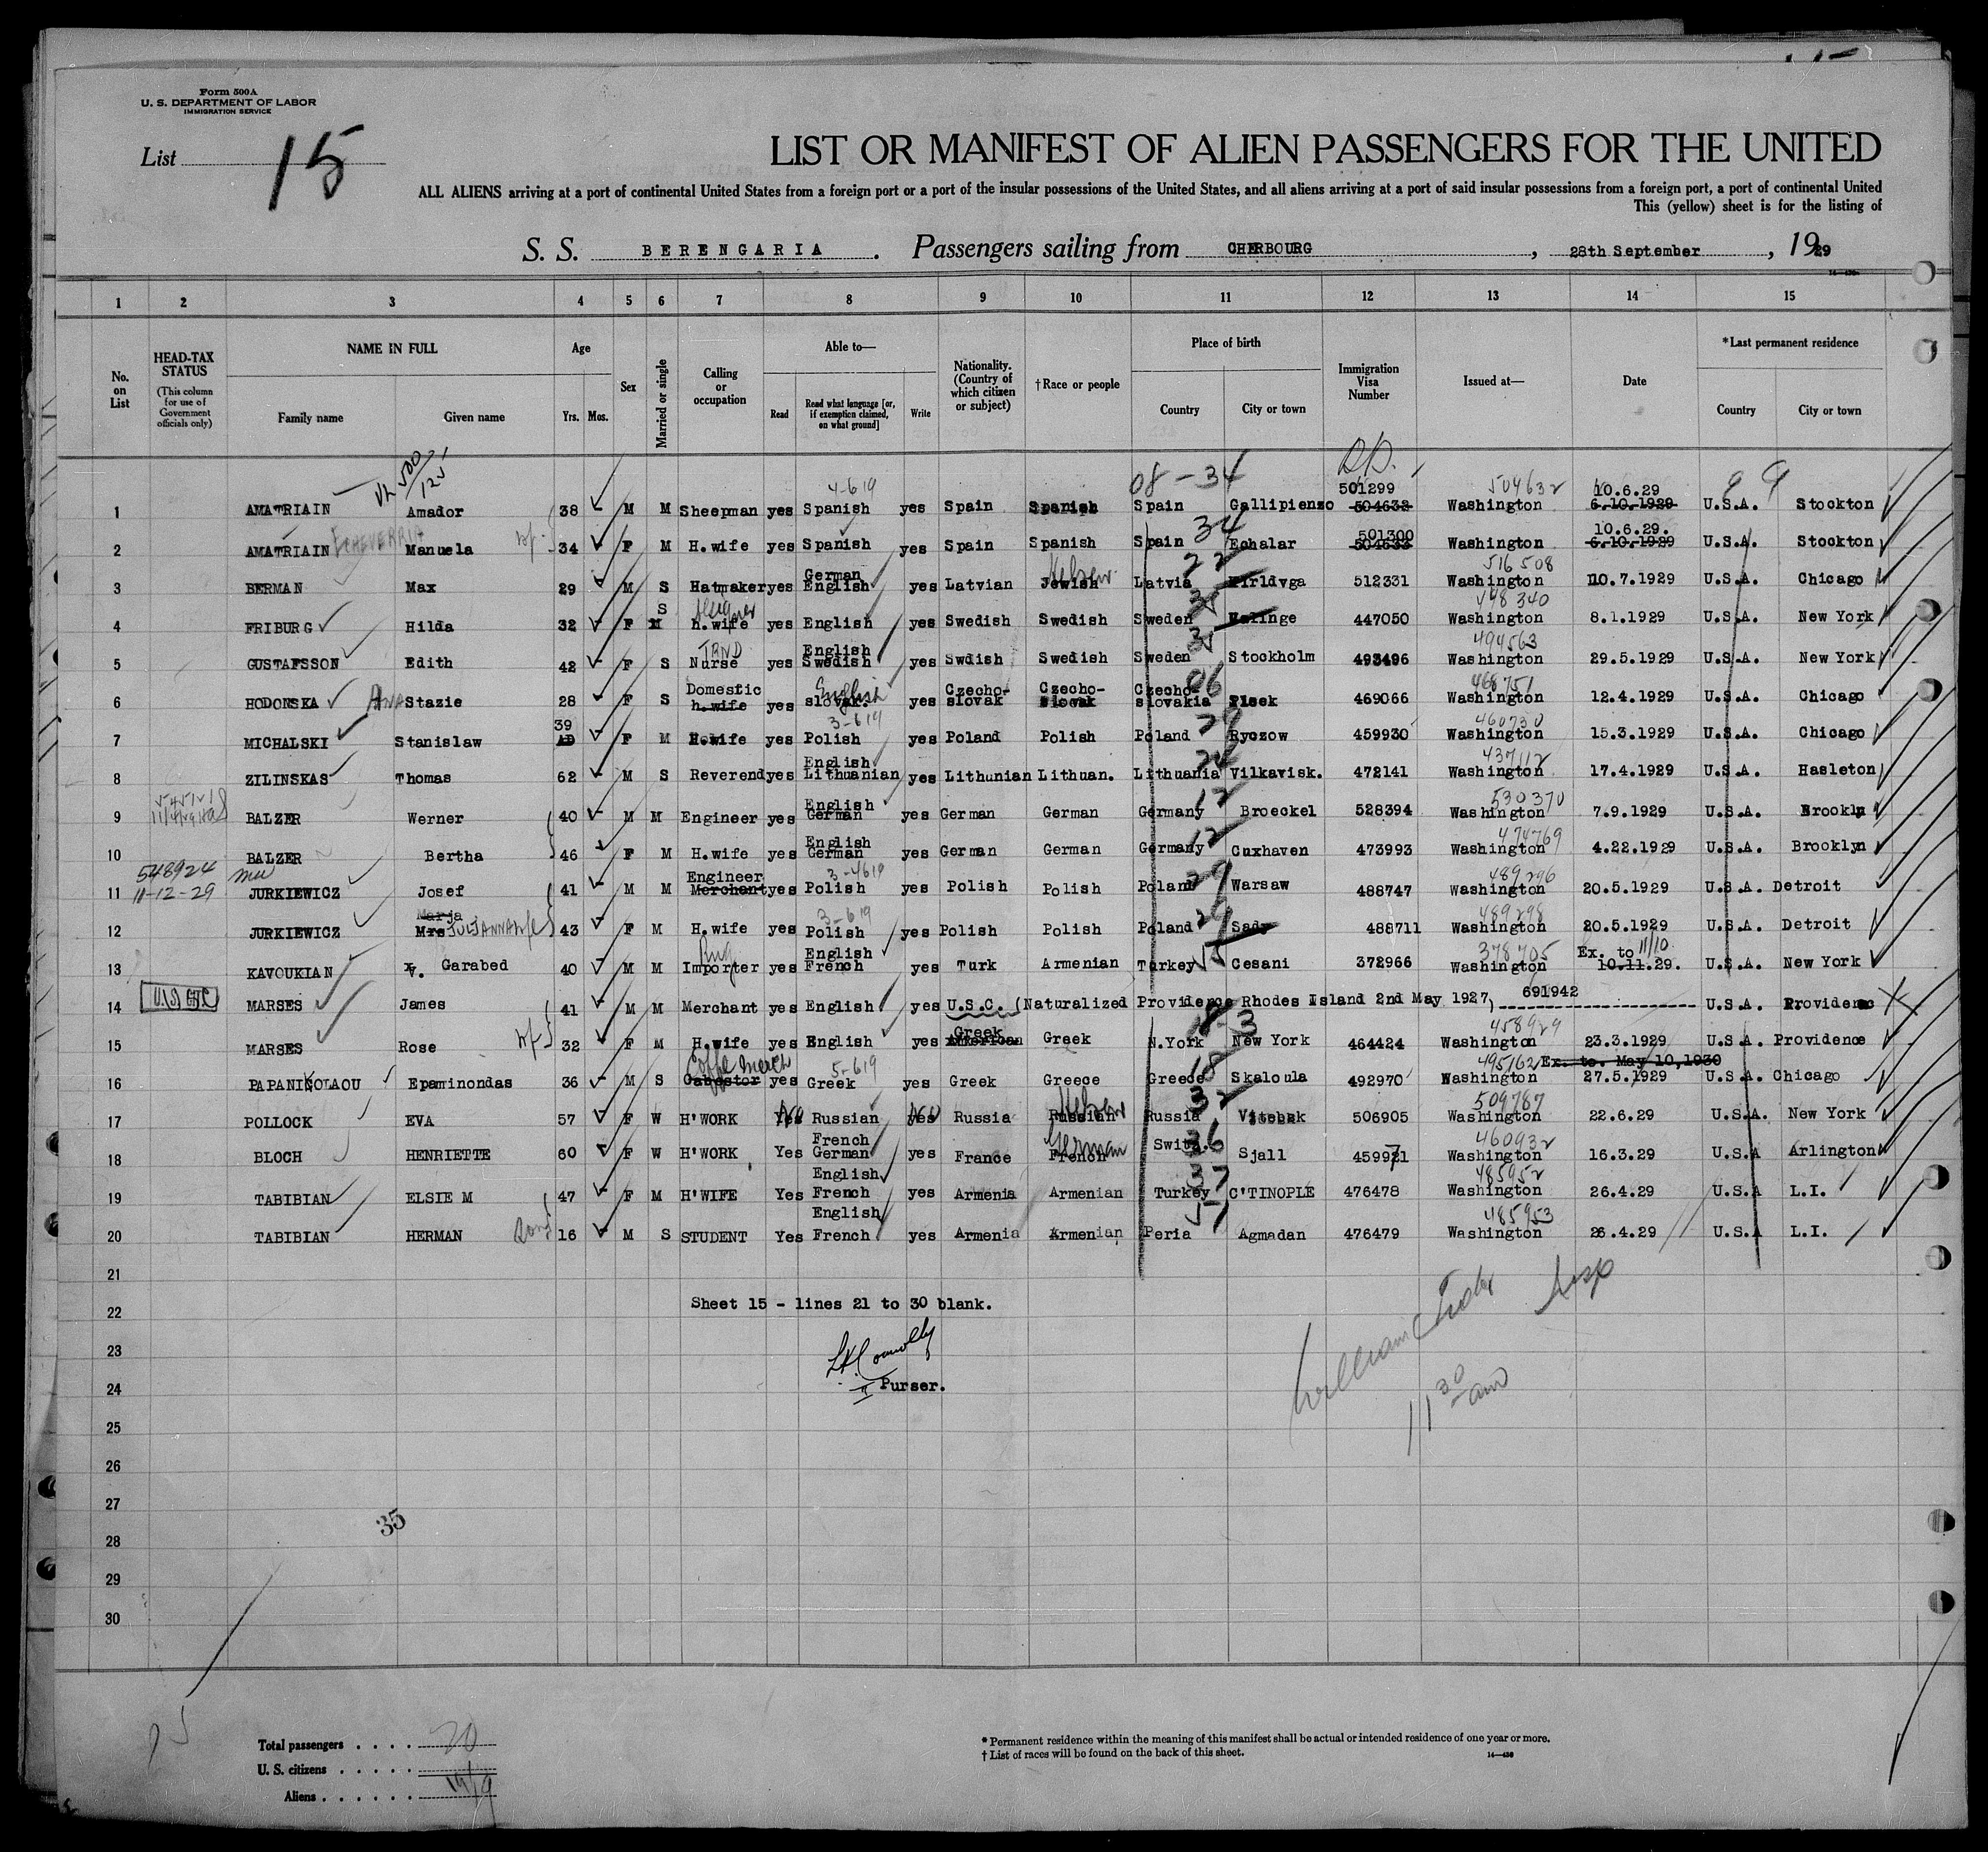 Form 500A
U. S. DEPARTMENT OF LABOR
IMMIGRATION SERVICE
List 15
LIST OR MANIFEST OF ALIEN PASSENGERS FOR THE UNITED
ALL ALIENS arriving at a port of continental United States from a foreign port or a port of the insular possessions of the United States, and all aliens arriving at a port of said insular possessions from a foreign port, a port of continental United
This (yellow) sheet is for the listing of
S. S. BERENGARIA. Passengers sailing from CHERBOURG, 28th September, 1929
1 2 3 4 5 6 7 8 9 10 11 12 13 14 15
No. on List
HEAD-TAX STATUS (This column for use of Government officials only)
NAME IN FULL Family name Given name
Age Yrs. Mos.
Sex
Married or single
Calling or occupation
Able to— Read Read what language [or, if exemption claimed, on what ground] Write
Nationality. (Country of which citizen or subject)
†Race or people
Place of birth Country City or town
Immigration Visa Number
Issued at—
Date
*Last permanent residence Country City or town
08-34 501299 504632 10.6.29
1 AMATRIAIN Amador 38 M M Sheepman yes 4-619 Spanish yes Spain Spanish Spain Gallipienzo 504632 Washington 6.10.1929 U.S.A. Stockton
2 AMATRIAIN ECHEVERRIA Manuela wf. 34 F M H.wife yes Spanish yes Spain Spanish Spain 34 Echalar 501300 504633 Washington 10.6.29. 6.10.1929 U.S.A. Stockton
3 BERMAN Max 29 M S Hatmaker yes German English yes Latvian Jewish Hebrew Latvia 22 512331 516508 Washington 10.7.1929 U.S.A. Chicago
4 FRIBURG Hilda 32 F S M h.wife yes English yes Swedish Swedish Sweden 447050 448340 Washington 8.1.1929 U.S.A. New York
5 GUSTAFSSON Edith 42 F S TRND Nurse yes English Swedish yes Swdish Swedish Sweden Stockholm 493496 494563 Washington 29.5.1929 U.S.A. New York
6 HODONSKA ANA Stazie 28 F S Domestic h.wife yes English slovak. yes Czecho-slovak Czecho-slovak Czecho-slovakia 06 469066 468751 Washington 12.4.1929 U.S.A. Chicago
7 MICHALSKI Stanislaw 39 F M H.wife yes 3-619 Polish yes Poland Polish Poland 29 Ryczow 459930 460730 Washington 15.3.1929 U.S.A. Chicago
8 ZILINSKAS Thomas 62 M S Reverend yes English Lithuanian yes Lithunian Lithuan. Lithuania 24 Vilkavisk. 472141 437112 Washington 17.4.1929 U.S.A. Hasleton
9 BALZER Werner 40 M M Engineer yes English German yes German German Germany 12 Broeckel 528394 530370 Washington 7.9.1929 U.S.A. Brookln
10 BALZER Bertha 46 F M H.wife yes English German yes German German Germany 12 Cuxhaven 473993 474769 Washington 4.22.1929 U.S.A. Brooklyn
548924
11-12-29
11 JURKIEWICZ Josef 41 M M Engineer Merchant yes 3-4619 Polish yes Polish Polish Poland 29 Warsaw 488747 489296 Washington 20.5.1929 U.S.A. Detroit
12 JURKIEWICZ Marja Mrs JULJANNA wf 43 F M H.wife yes 3-619 Polish yes Polish Polish Poland 29 Sady 488711 489298 Washington 20.5.1929 U.S.A. Detroit
13 KAVOUKIAN V. Garabed 40 M M Rug Importer yes English French yes Turk Armenian Turkey Cesani 372966 378705 Washington Ex. to 11/10 10.11.29. U.S.A. New York
14 U.S. CTC MARSES James 41 M M Merchant yes English yes U.S.C. (Naturalized Providence Rhodes Island 2nd May 1927) 691942 U.S.A. Providenc
15 MARSES Rose wf 32 F M H.wife yes English yes Greek American Greek N.York New York 464424 458929 Washington 23.3.1929 U.S.A. Providence
16 PAPANIKOLAOU Epaminondas 36 M S Coffe Merch yes 5-619 Greek yes Greek Greece Greece 18 Skaloula 492970 495162 Washington Ex. to. May 10,1930 27.5.1929 U.S.A. Chicago
17 POLLOCK EVA 57 F W H'WORK Yes No Russian yes No Russia Russian Hebrew Russia 32 Vitebsk 506905 509787 Washington 22.6.29 U.S.A. New York
18 BLOCH HENRIETTE 60 F W H'WORK Yes French German yes France French German Switz. 36 Sjall 459921 460932 Washington 16.3.29 U.S.A Arlington
19 TABIBIAN ELSIE M 47 F M H'WIFE Yes English French yes Armenia Armenian Turkey 37 C'TINOPLE 476478 485952 Washington 26.4.29 U.S.A L.I.
20 TABIBIAN HERMAN Son 16 M S STUDENT Yes English French yes Armenia Armenian Peria 57 Agmadan 476479 485953 Washington 26.4.29 U.S.A L.I.
21
22 Sheet 15 - lines 21 to 30 blank.
23
24 Purser.
25
26
27
28
29
30
35
William
Insp
11 30 am
Total passengers . . . . 20
U. S. citizens . . . . .
Aliens . . . . . . 19
* Permanent residence within the meaning of this manifest shall be actual or intended residence of one year or more.
† List of races will be found on the back of this sheet.
14—430